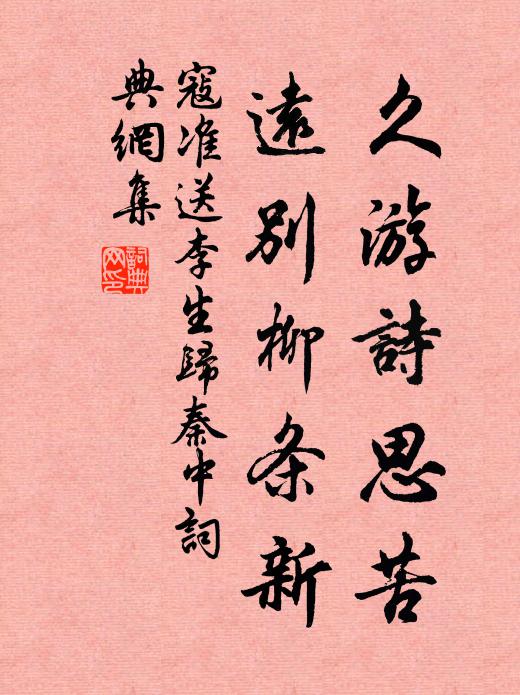 久游詩思苦
遠別柳条新
寇准送李生歸秦中詞
典網集
詞典
网印